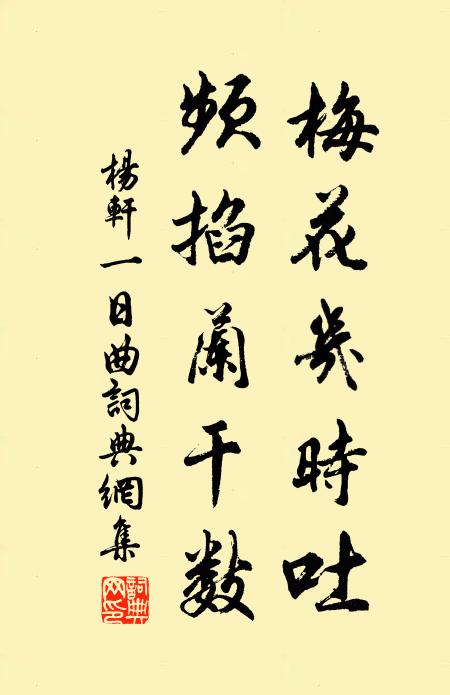 梅花幾時吐
頻掐蘭干數
楊軒一日曲詞典網集
詞典网印